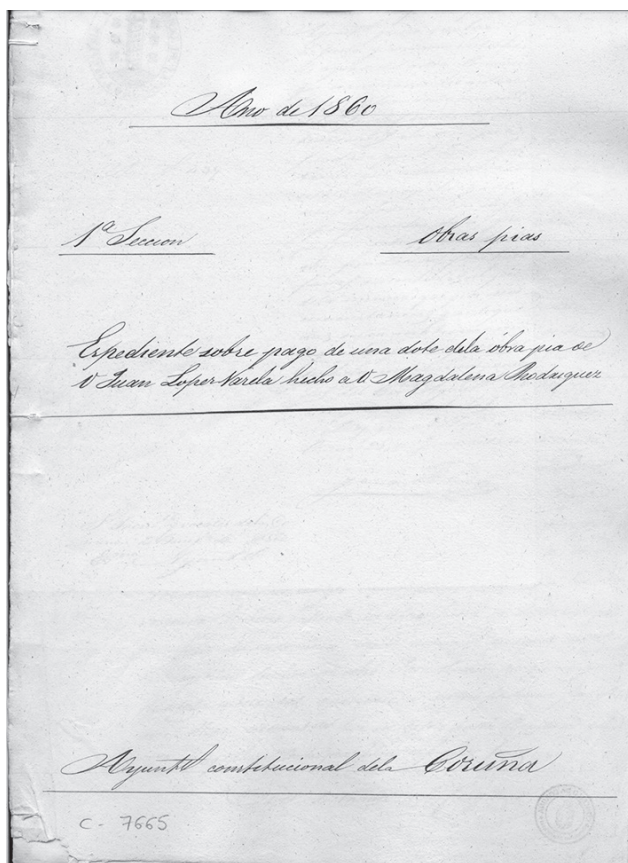 Año de 1860
1ª Seccion
Obras pias
Espediente sobre pago de una dote dela óbra pia de
D Juan Lopez Varela hecho a Dª Magdalena Rodriguez
Ayuntº constitucional dela Coruña
C - 7665